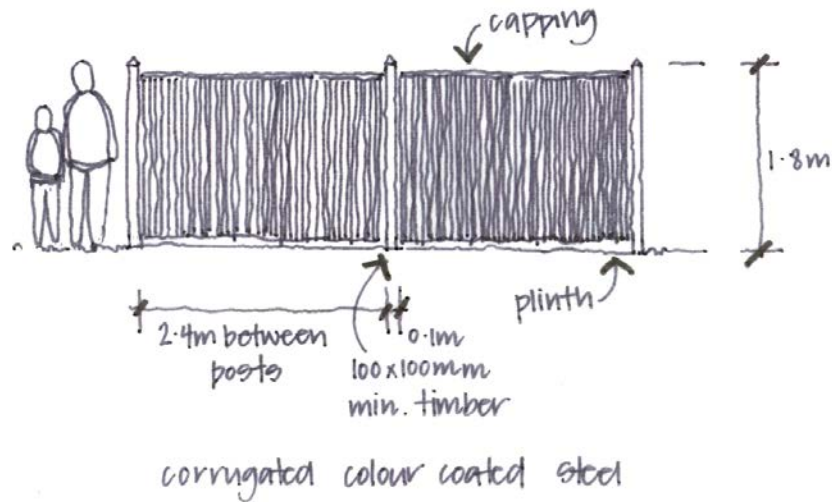 capping
1.8m
plinth
2.4m between
posts
0.1m
100x100mm
min. timber
corrugated colour coated steel